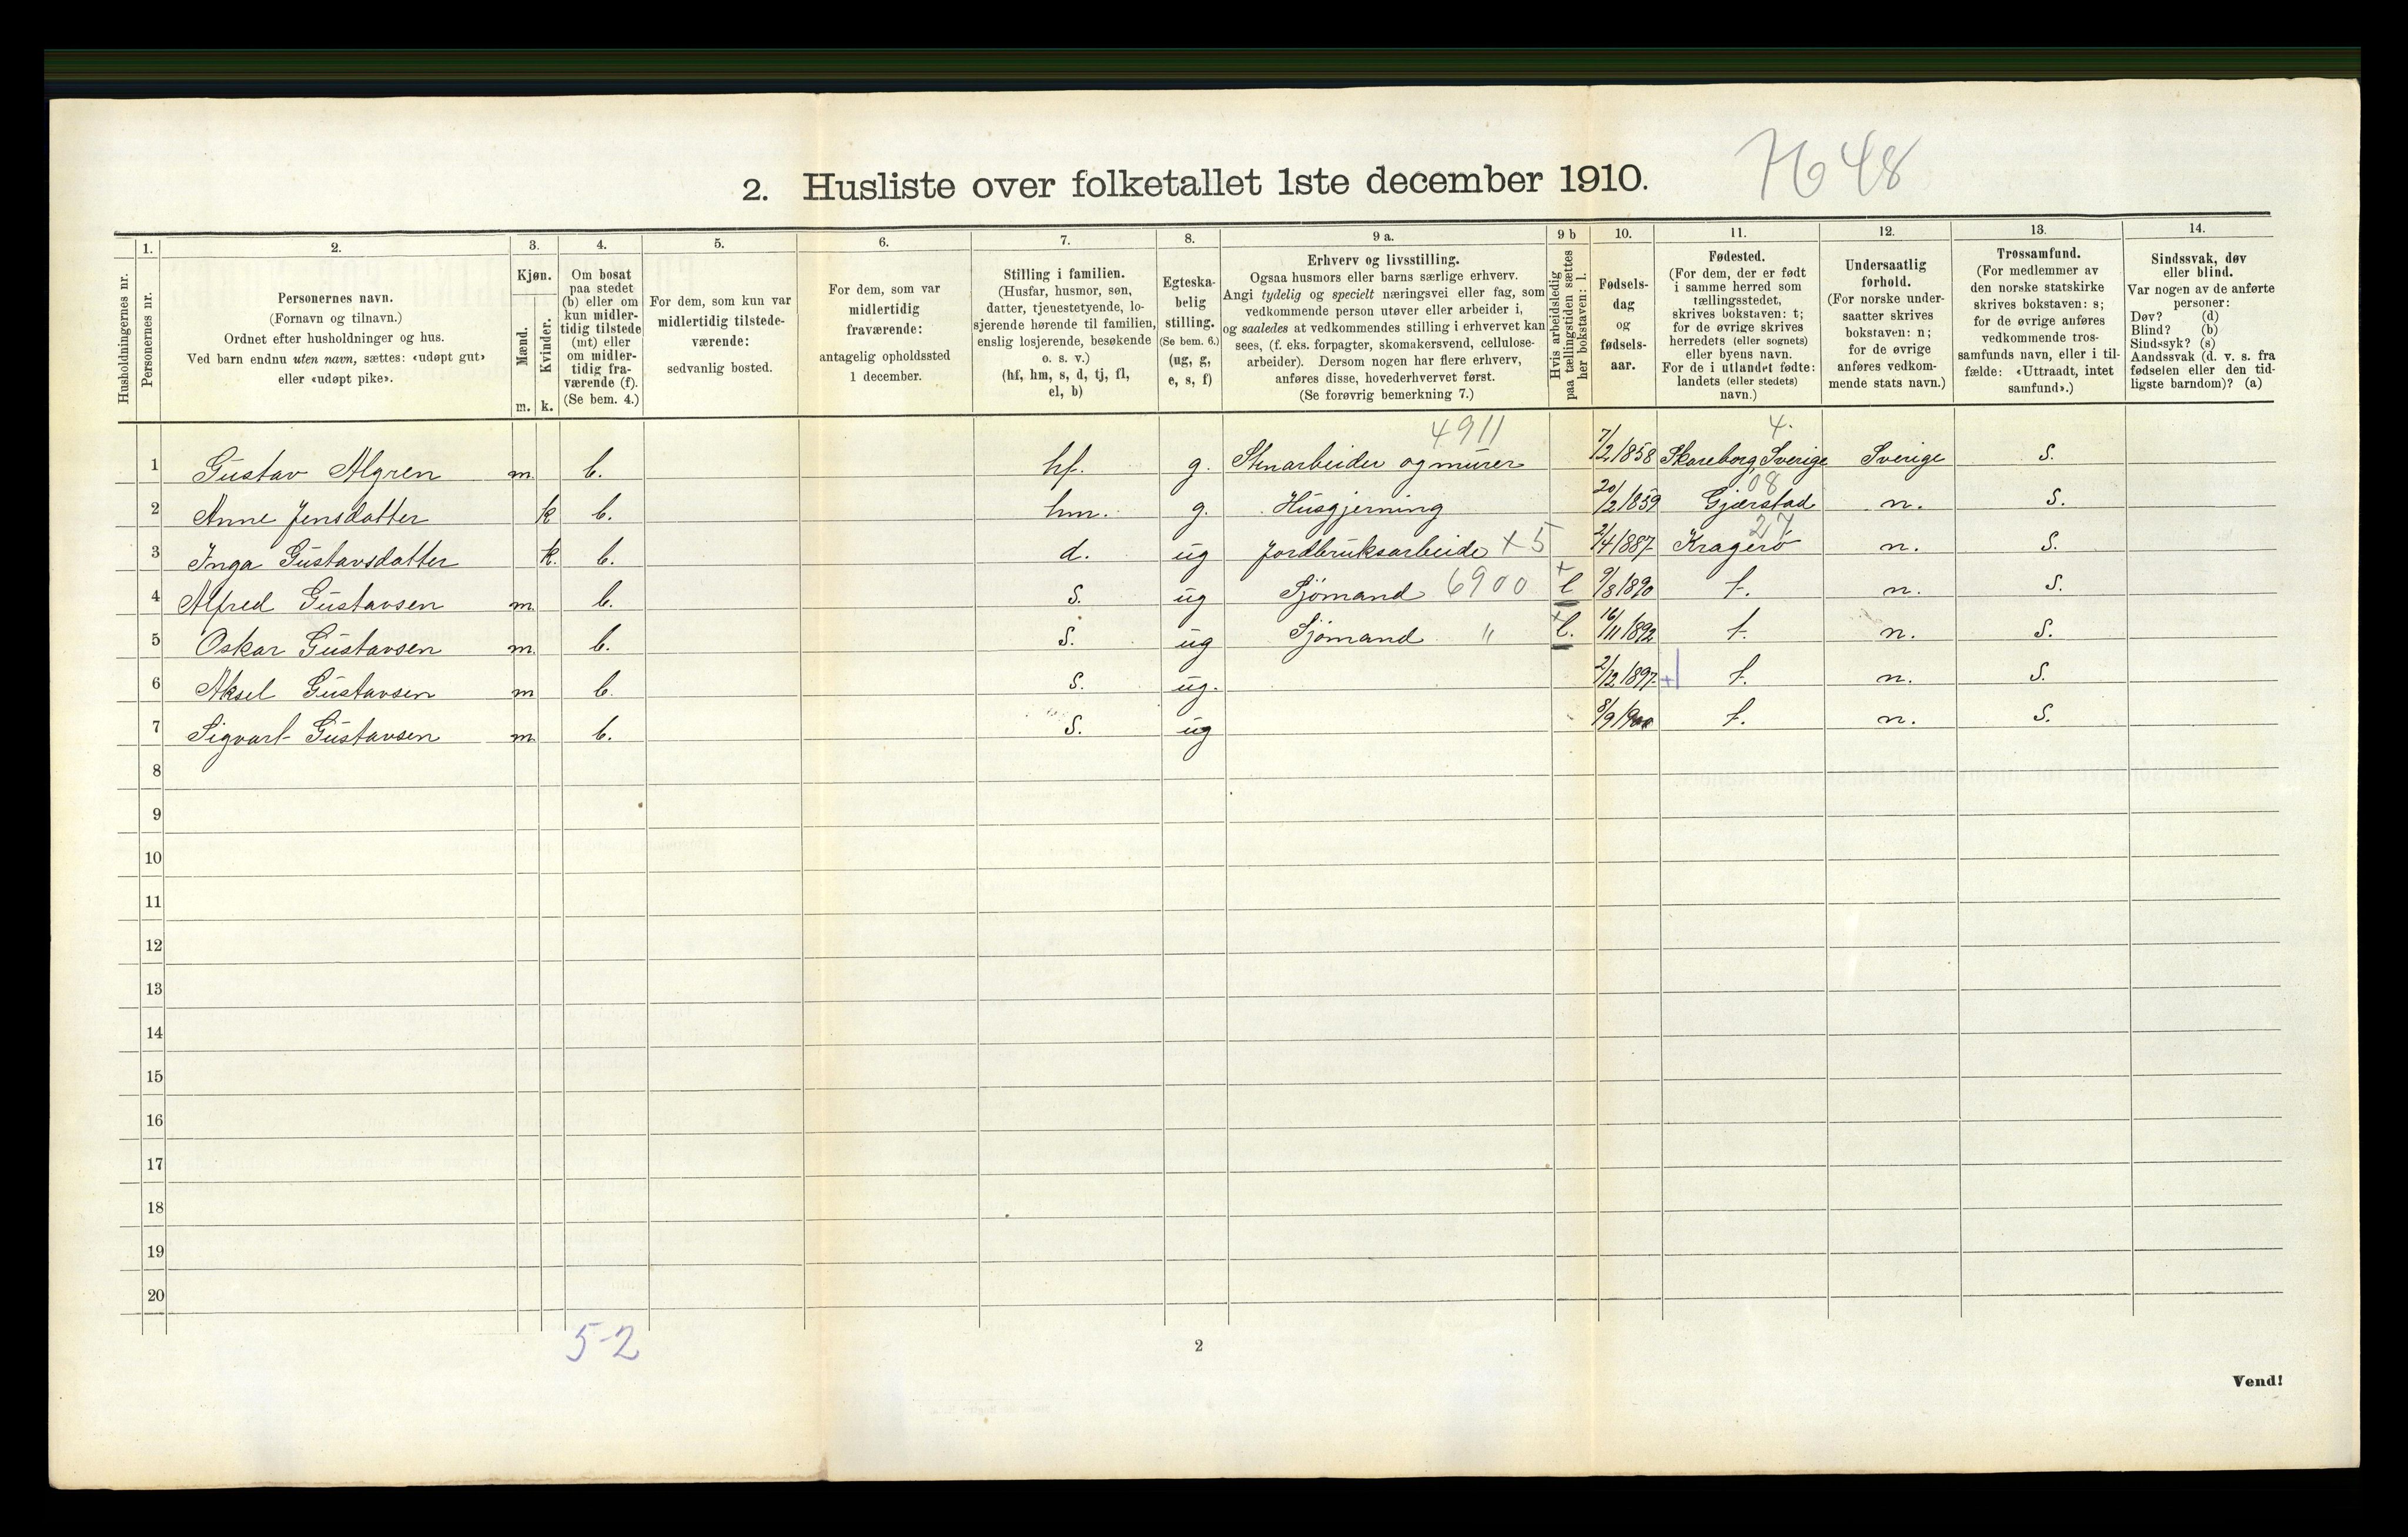 7648
2. Husliste over folketallet 1ste december 1910.
Husholdningernes nr.
1.
Personernes nr.
2.
Personernes navn.
(Fornavn og tilnavn.)
Ordnet efter husholdninger og hus.
Ved barn endnu uten navn, sættes: «udøpt gut»
eller «udøpt pike».
3.
Kjøn.
Mænd.
Kvinder.
m. k.
4.
Om bosat
paa stedet
(b) eller om
kun midler-
tidig tilstede
(mt) eller
om midler-
tidig fra-
værende (f).
(Se bem. 4.)
5.
For dem, som kun var
midlertidig tilstede-
værende:
sedvanlig bosted.
6.
For dem, som var
midlertidig
fraværende:
antagelig opholdssted
1 december.
7.
Stilling i familien.
(Husfar, husmor, søn,
datter, tjenestetyende, lo-
sjerende hørende til familien,
enslig losjerende, besøkende
o. s. v.)
(hf, hm, s, d, tj, fl,
el, b)
8.
Egteska-
belig
stilling.
(Se bem. 6.)
(ug, g,
e, s, f)
9 a.
Erhverv og livsstilling.
Ogsaa husmors eller barns særlige erhverv.
Angi tydelig og specielt næringsvei eller fag, som
vedkommende person utøver eller arbeider i,
og saaledes at vedkommendes stilling i erhvervet kan
sees, (f. eks. forpagter, skomakersvend, cellulose-
arbeider). Dersom nogen har flere erhverv,
anføres disse, hovederhvervet først.
(Se forøvrig bemerkning 7.)
9 b
Hvis arbeidsledig
paa tællingstiden sættes
her bokstaven: l.
10.
Fødsels-
dag
og
fødsels-
aar.
11.
Fødested.
(For dem, der er født
i samme herred som
tællingsstedet,
skrives bokstaven: t;
for de øvrige skrives
herredets (eller sognets)
eller byens navn.
For de i utlandet fødte:
landets (eller stedets)
navn.)
12.
Undersaatlig
forhold.
(For norske under-
saatter skrives
bokstaven: n;
for de øvrige
anføres vedkom-
mende stats navn.)
13.
Trossamfund.
(For medlemmer av
den norske statskirke
skrives bokstaven: s;
for de øvrige anføres
vedkommende tros-
samfunds navn, eller i til-
fælde: «Uttraadt, intet
samfund».)
14.
Sindssvak, døv
eller blind.
Var nogen av de anførte
personer:
Døv? (d)
Blind? (b)
Sindssyk? (s)
Aandssvak (d. v. s. fra
fødselen eller den tid-
ligste barndom)? (a)
4911 4.
1 Gustav Algren m. b. hf. g. Stenarbeider og murer 7/2 1858 Skareborg, Sverige Sverige S.
08
2 Anne Jensdatter k b. hm. g. Husgjerning 20/2 1859 Gjerstad n. S.
27
3 Inga Gustavsdatter k. b. d. ug Jordbruksarbeide x 5 2/4 1887 Kragerø n. S.
4 Alfred Gustavsen m. b. S. ug Sjømand 6900 x l 9/8 1890 t. n. S.
5 Oskar Gustavsen m. b. S. ug Sjømand " x l. 16/11 1892 t. n. S.
6 Aksel Gustavsen m b. S. ug. 2/12 1897 + t. n. S.
7 Sigvart Gustavsen m b. S. ug 8/9 1900 t. n. S.
8
9
10
11
12
13
14
15
16
17
18
19
20
5-2
2
Vend!